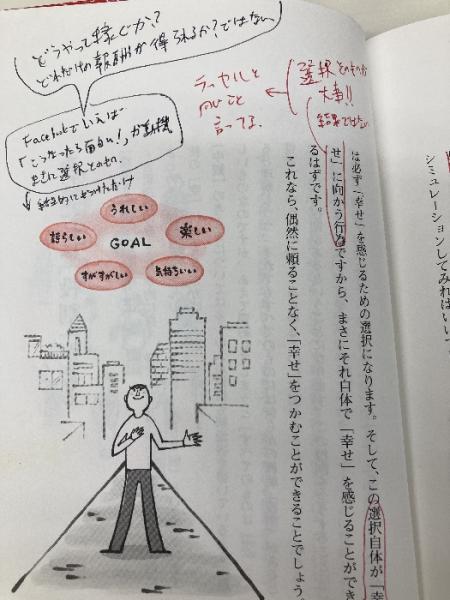 どうやって稼ぐか?
どれだけの報酬が得られるか?ではない
Facebookでいえば
「こうなったら面白い!」が動機
まさに選択そのもの。
選択そのものが
大事!!
結果ではない
と
同じこと
言ってる
うれしい
誇らしい
GOAL
楽しい
すがすがしい
気持ちいい
は必ず「幸せ」を感じるための選択になります。そして、この選択自体が「幸
せ」に向かう行為ですから、まさにそれ自体で「幸せ」を感じることができ
るはずです。
これなら、偶然に頼ることなく、「幸せ」をつかむことができることでしょう
シミュレーションしてみればいい